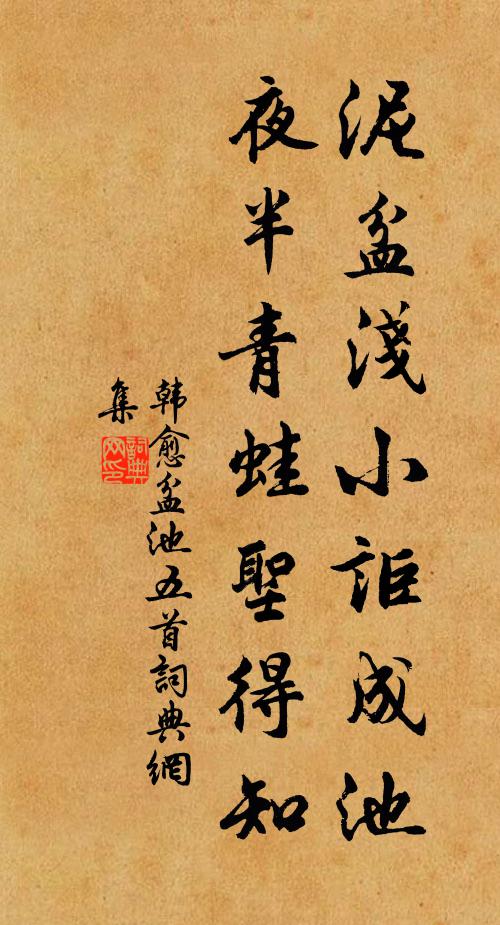 泥盆淺小詎成池
夜半青蛙聖得知
韩愈盆池五首詞典網
集
詞典网印